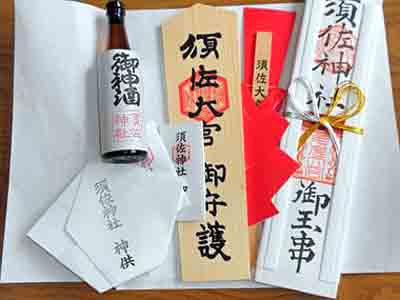 御神酒
須佐
神社
須佐神社
神供
須佐神社
須佐大宮 御守護
須佐大
須佐神社
御玉串